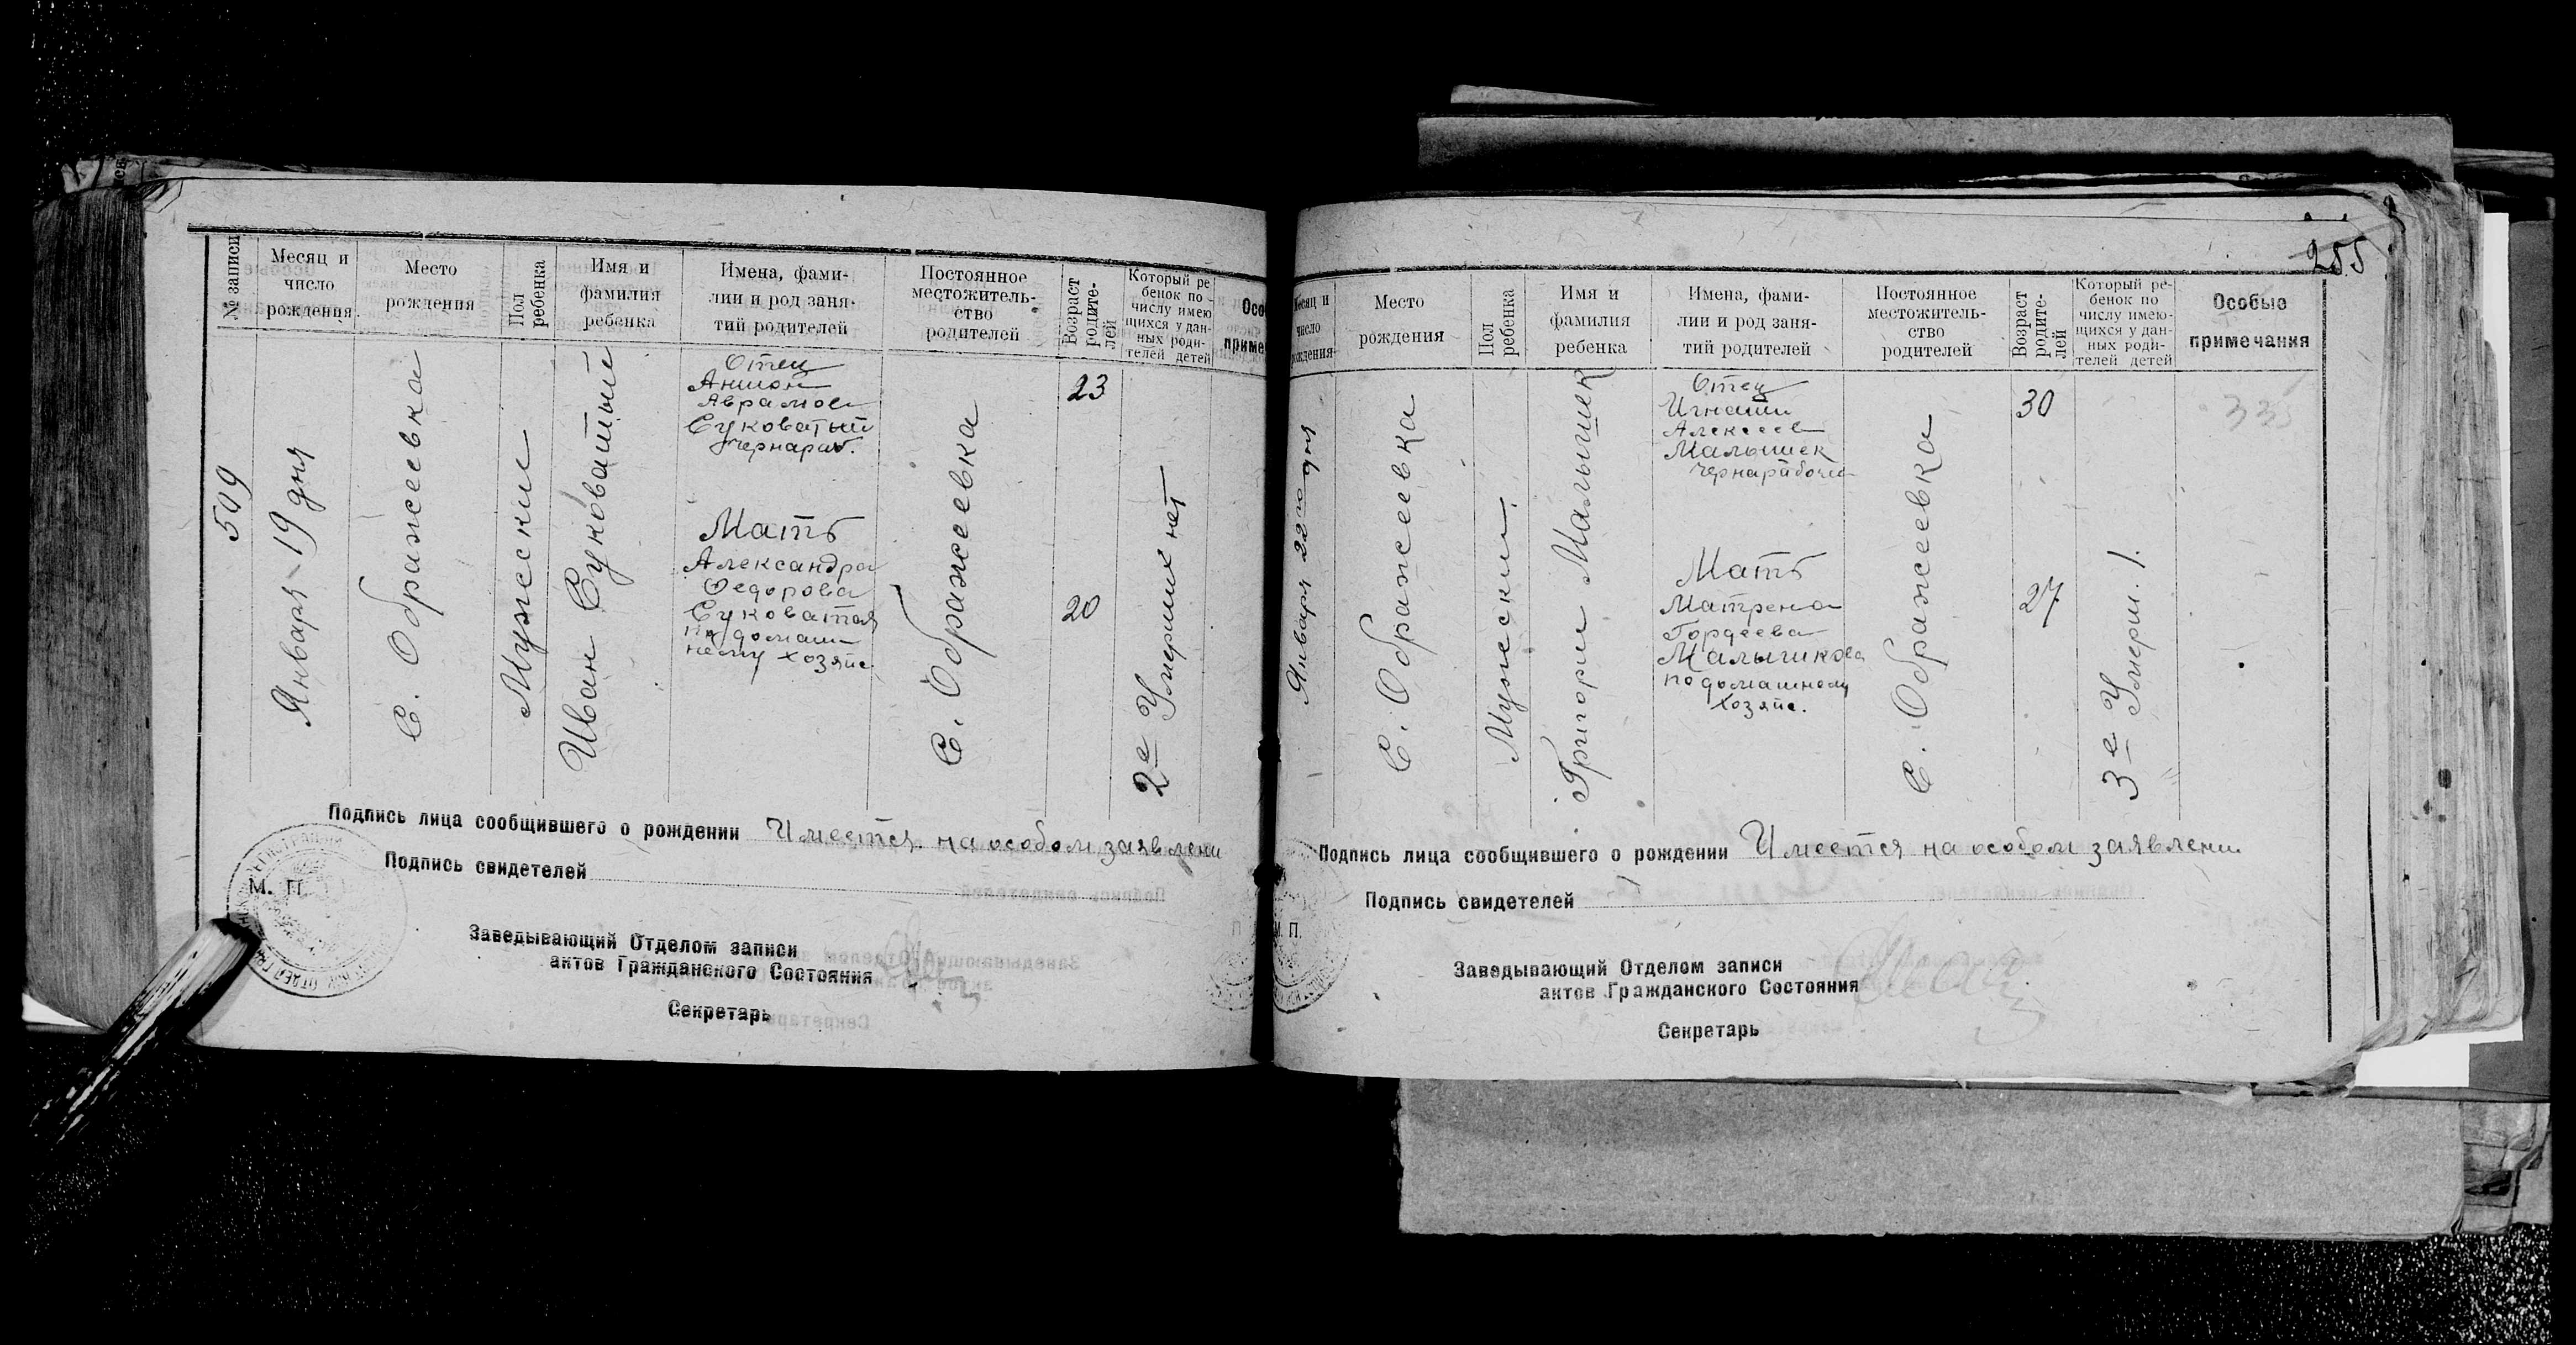 № записи
Месяц и
число
рождения
Место
рождения
Пол
ребенка
Имя и
фамилия
ребенка
Имена, фами-
лии и род заня-
тий родителей
Постоянное
местожитель-
ство
родителей
Возраст
родите-
лей
Который ре
бенок по -
числу имею
щихся у дан-
ных роди-
телей детей
Осо
приме
509
Января 19 дня
С. Ображеевка
Мужский
Иван Суковатый
Отец
Антон
Аврамов
Суковатый
Чернораб.
Мать
Александра
Федорова
Суковатая
по домаш-
нему хозяйс.
С. Ображеевка
23
20
2е Умерших нет
Подпись лица сообщившего о рождении Имеется на особом заявлени
Подпись свидетелей
М. П.
Заведывающий Отделом записи
актов Гражданского Состояния
Секретарь
255
Месяц и
число
рождения
Место
рождения
Пол
ребенка
Имя и
фамилия
ребенка
Имена, фами-
лии и род заня-
тий родителей
Постоянное
местожитель-
ство
родителей
Возраст
родите-
лей
Который ре-
бенок по
числу имею-
щихся у дан-
ных роди-
телей детей
Особые
примечания
Января 22го дня
С. Ображеевка
Мужский
Григорий Малышек
Отец
Игнатий
Алексеев
Малышек
Чернарабочий
Мать
Матрена
Гордеева
Малышкова
по домашнему
хозяйс.
С. Ображеевка
30
27
3е Умерш. 1.
33
Подпись лица сообщившего о рождении Имеется на особом заявлении
Подпись свидетелей
М. П.
Заведывающий Отделом записи
актов Гражданского Состояния
Секретарь